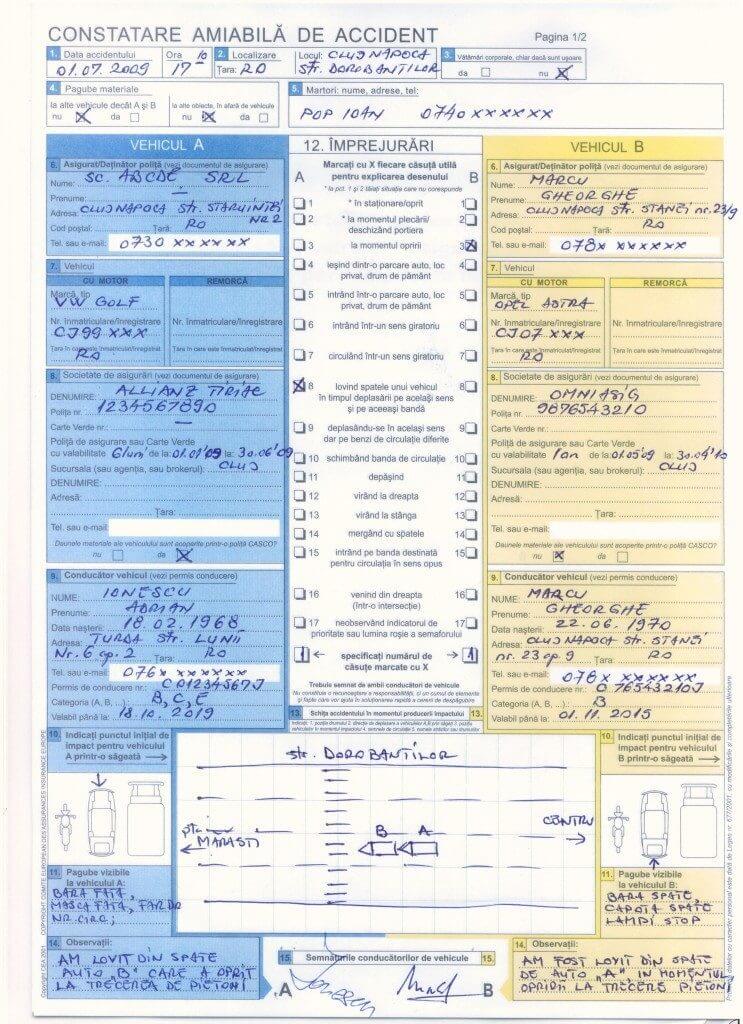 CONSTATARE AMIABILĂ DE ACCIDENT
Pagina 1/2
1. Data accidentului
01.07.2009
Ora 10
17
2. Localizare
Țara: RO
Locul: CLUJ NAPOCA
Str. DOROBANTILOR
3. Vătămări corporale, chiar dacă sunt ușoare
da nu X
4. Pagube materiale
la alte vehicule decât A și B
nu X da
la alte obiecte, în afară de vehicule
nu X da
5. Martori: nume, adrese, tel:
POP IOAN 0740 xxxxxx
VEHICUL A
6. Asigurat/Deținător poliță (vezi documentul de asigurare)
Nume: SC. ABCDE SRL
Prenume: —
Adresa: CLUJ NAPOCA Str.
NR 2
Cod poștal: Țară: RO
Tel. sau e-mail: 0730 xxxxxx
7. Vehicul
CU MOTOR
REMORCĂ
Marcă, tip
VW GOLF
Nr. înmatriculare/înregistrare
CJ99 XXX
Țara în care este înmatriculat/înregistrat
RO
Nr. înmatriculare/înregistrare
Țara în care este înmatriculat/înregistrat
8. Societate de asigurări (vezi documentul de asigurare)
DENUMIRE: ALLIANZ TIRIAC
Polița nr. 1234567890
Carte Verde nr.: —
Poliță de asigurare sau Carte Verde
cu valabilitate 6 luni de la 01.01'09 la: 30.06'09
Sucursala (sau agenția, sau brokerul): CLUJ
DENUMIRE:
Adresă:
Țara:
Tel. sau e-mail:
Daunele materiale ale vehiculului sunt acoperite printr-o poliță CASCO?
nu da X
9. Conducător vehicul (vezi permis conducere)
NUME: IONESCU
Prenume: ADRIAN
Data nașterii: 18.02.1968
Adresa: TURDA Str. LUNII
Nr. 6 ap. 2 Țara: RO
Tel. sau e-mail: 076x xxxxxx
Permis de conducere nr.: C01234567J
Categoria (A, B, ...): B, C, E
Valabil până la: 18.10.2019
10. Indicați punctul inițial de
impact pentru vehiculul
A printr-o săgeată
11. Pagube vizibile
la vehiculul A:
BARA FATA,
MASCA FATA, FAR DR
NR. CIRC;
14. Observații:
AM LOVIT DIN SPATE
AUTO „B" CARE A OPRIT
LA TRECEREA DE PIETONI
12. ÎMPREJURĂRI
Marcați cu X fiecare căsuță utilă
pentru explicarea desenului
* la pct. 1 și 2 tăiați situația care nu corespunde
A B
1 * în staționare/oprit 1
2 * la momentul plecării/ 2
deschizând portiera
3 la momentul opririi 3 X
4 ieșind dintr-o parcare auto, loc 4
privat, drum de pământ
5 intrând într-o parcare auto, loc 5
privat, drum de pământ
6 intrând într-un sens giratoriu 6
7 circulând într-un sens giratoriu 7
X 8 lovind spatele unui vehicul 8
în timpul deplasării pe același sens
și pe aceeași bandă
9 deplasându-se în același sens 9
dar pe benzi de circulație diferite
10 schimbând banda de circulație 10
11 depășind 11
12 virând la dreapta 12
13 virând la stânga 13
14 mergând cu spatele 14
15 intrând pe banda destinată 15
pentru circulația în sens opus
16 venind din dreapta 16
(într-o intersecție)
17 neobservând indicatorul de 17
prioritate sau lumina roșie a semaforului
1 specificați numărul de 1
căsuțe marcate cu X
Trebuie semnat de ambii conducători de vehicule
Nu constituie o recunoaștere a responsabilității, ci un sumar de elemente
și fapte care vor ajuta în soluționarea rapidă a cererii de despăgubire
13. Schița accidentului în momentul producerii impactului 13.
str. DOROBANTILOR
MARASTI
B A
CENTRU
15. Semnăturile conducătorilor de vehicule 15.
A B
VEHICUL B
6. Asigurat/Deținător poliță (vezi documentul de asigurare)
Nume: MARCU
Prenume: GHEORGHE
Adresa: CLUJ NAPOCA str. STANEI nr. 23/9
Cod poștal: Țară: RO
Tel. sau e-mail: 078x xxxxxx
7. Vehicul
CU MOTOR
REMORCĂ
Marcă, tip
OPEL ASTRA
Nr. înmatriculare/înregistrare
CJ07 XXX
Țara în care este înmatriculat/înregistrat
RO
Nr. înmatriculare/înregistrare
Țara în care este înmatriculat/înregistrat
8. Societate de asigurări (vezi documentul de asigurare)
DENUMIRE: OMNIASIG
Polița nr. 9876543210
Carte Verde nr.:
Poliță de asigurare sau Carte Verde
cu valabilitate 1 an de la: 01.05'09 la: 30.04'10
Sucursala (sau agenția, sau brokerul): CLUJ
DENUMIRE:
Adresă:
Țara:
Tel. sau e-mail:
Daunele materiale ale vehiculului sunt acoperite printr-o poliță CASCO?
nu X da
9. Conducător vehicul (vezi permis conducere)
NUME: MARCU
Prenume: GHEORGHE
Data nașterii: 22.06.1970
Adresa: CLUJ NAPOCA str. STANEI
nr. 23 ap 9 Țara: RO
Tel. sau e-mail: 078x xxxxxx
Permis de conducere nr.: C 76543210J
Categoria (A, B, ...): B
Valabil până la: 01.11.2015
10. Indicați punctul inițial de
impact pentru vehiculul
B printr-o săgeată
11. Pagube vizibile
la vehiculul B:
BARA SPATE,
CAPOTA SPATE
LAMPI STOP
14. Observații:
AM FOST LOVIT DIN SPATE
DE AUTO „A" IN MOMENTUL
OPRIRII LA TRECERE PIETONI